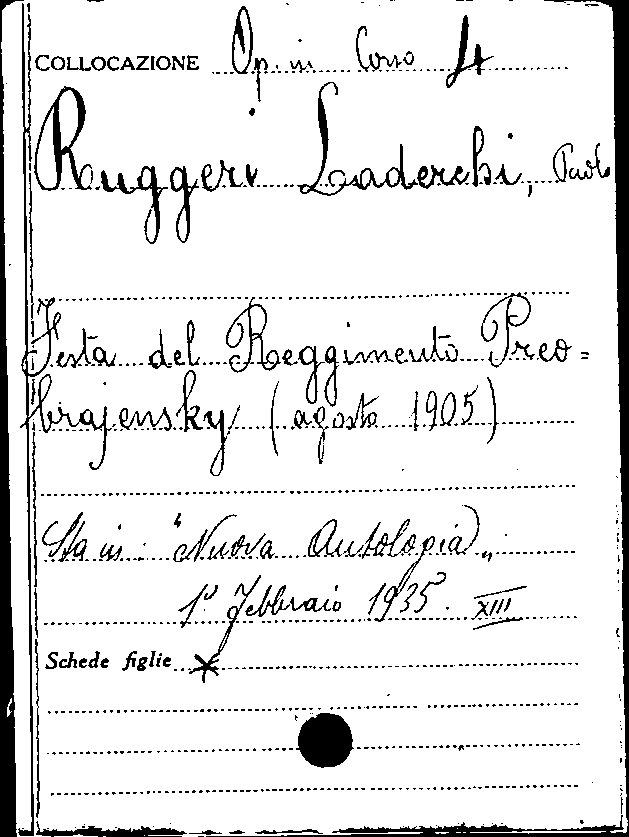 COLLOCAZIONE Op. in Corso 4
Ruggeri Laderchi, Paolo
Festa del Reggimento Preo=
brajensky (agosto 1905)
Sta in: "Nuova Antologia",
1° Febbraio 1935. XIII
Schede figlie *